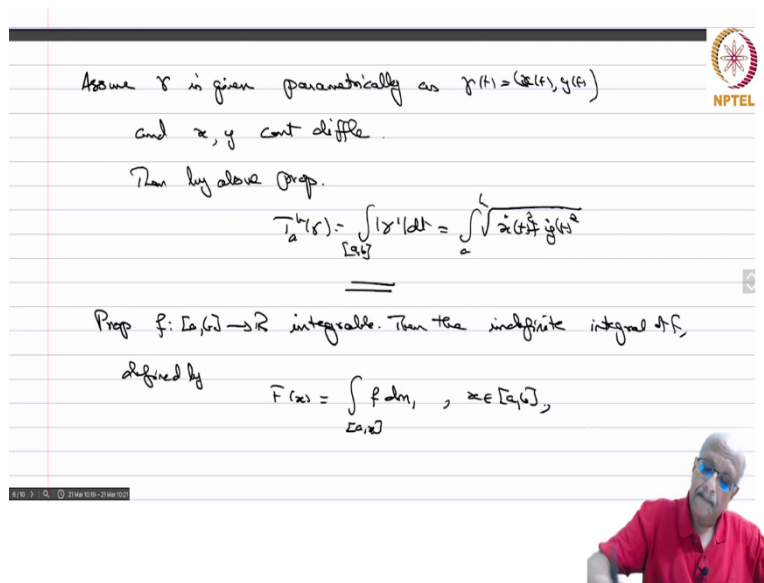 Assume γ is given parametrically as γ(t) = (x(t), y(t))
NPTEL
and x, y cont diffle.
Then by above prop.
T_a^b(γ) = ∫_{[a,b]} |γ'| dt = ∫_a^b √(ẋ(t)² + ẏ(t)²
Prop f: [a,b] → ℝ integrable. Then the indefinite integral of f,
defined by
F(x) = ∫_{[a,x]} f dm₁ , x ∈ [a,b],
6/10 21 Mar 10:19 - 21 Mar 10:21